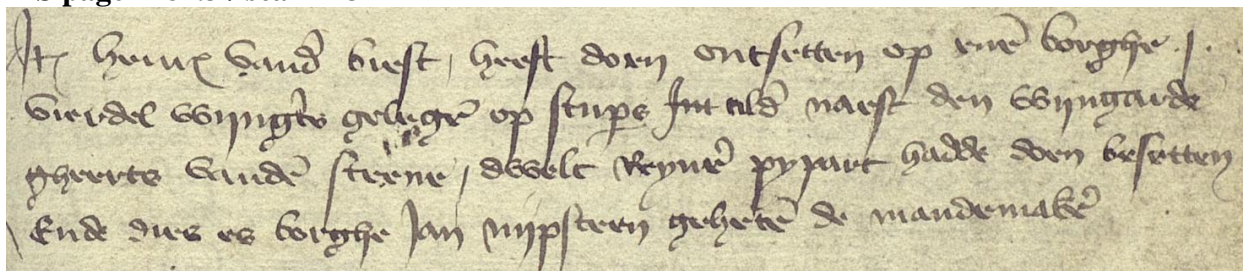 Itē henric vand̄ biest, heeft doen ontsetten op enē borghe .j.
vierdel wijngt̄s gelegē op stups Int eild̄ naest den wijngarde
gheerts vandē steene, dwelc Reynē pypart hadde doen besetten
Ende dies es borghe Jan nijpsteen gehetē de mandemakē